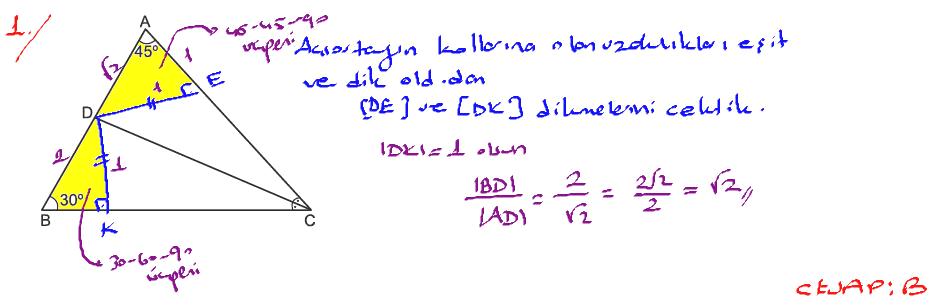 1./
A
45°
45-45-90
üçgeni
√2
1
1
E
Açıortayın kollarına olan uzaklıkları eşit
ve dik old.dan
[DE] ve [DK] dikmelerini çektik.
D
2
1
30°
B
K
C
30-60-90
üçgeni
|DK|=1 olsun
|BD|/|AD| = 2/√2 = 2√2/2 = √2//
CEVAP: B